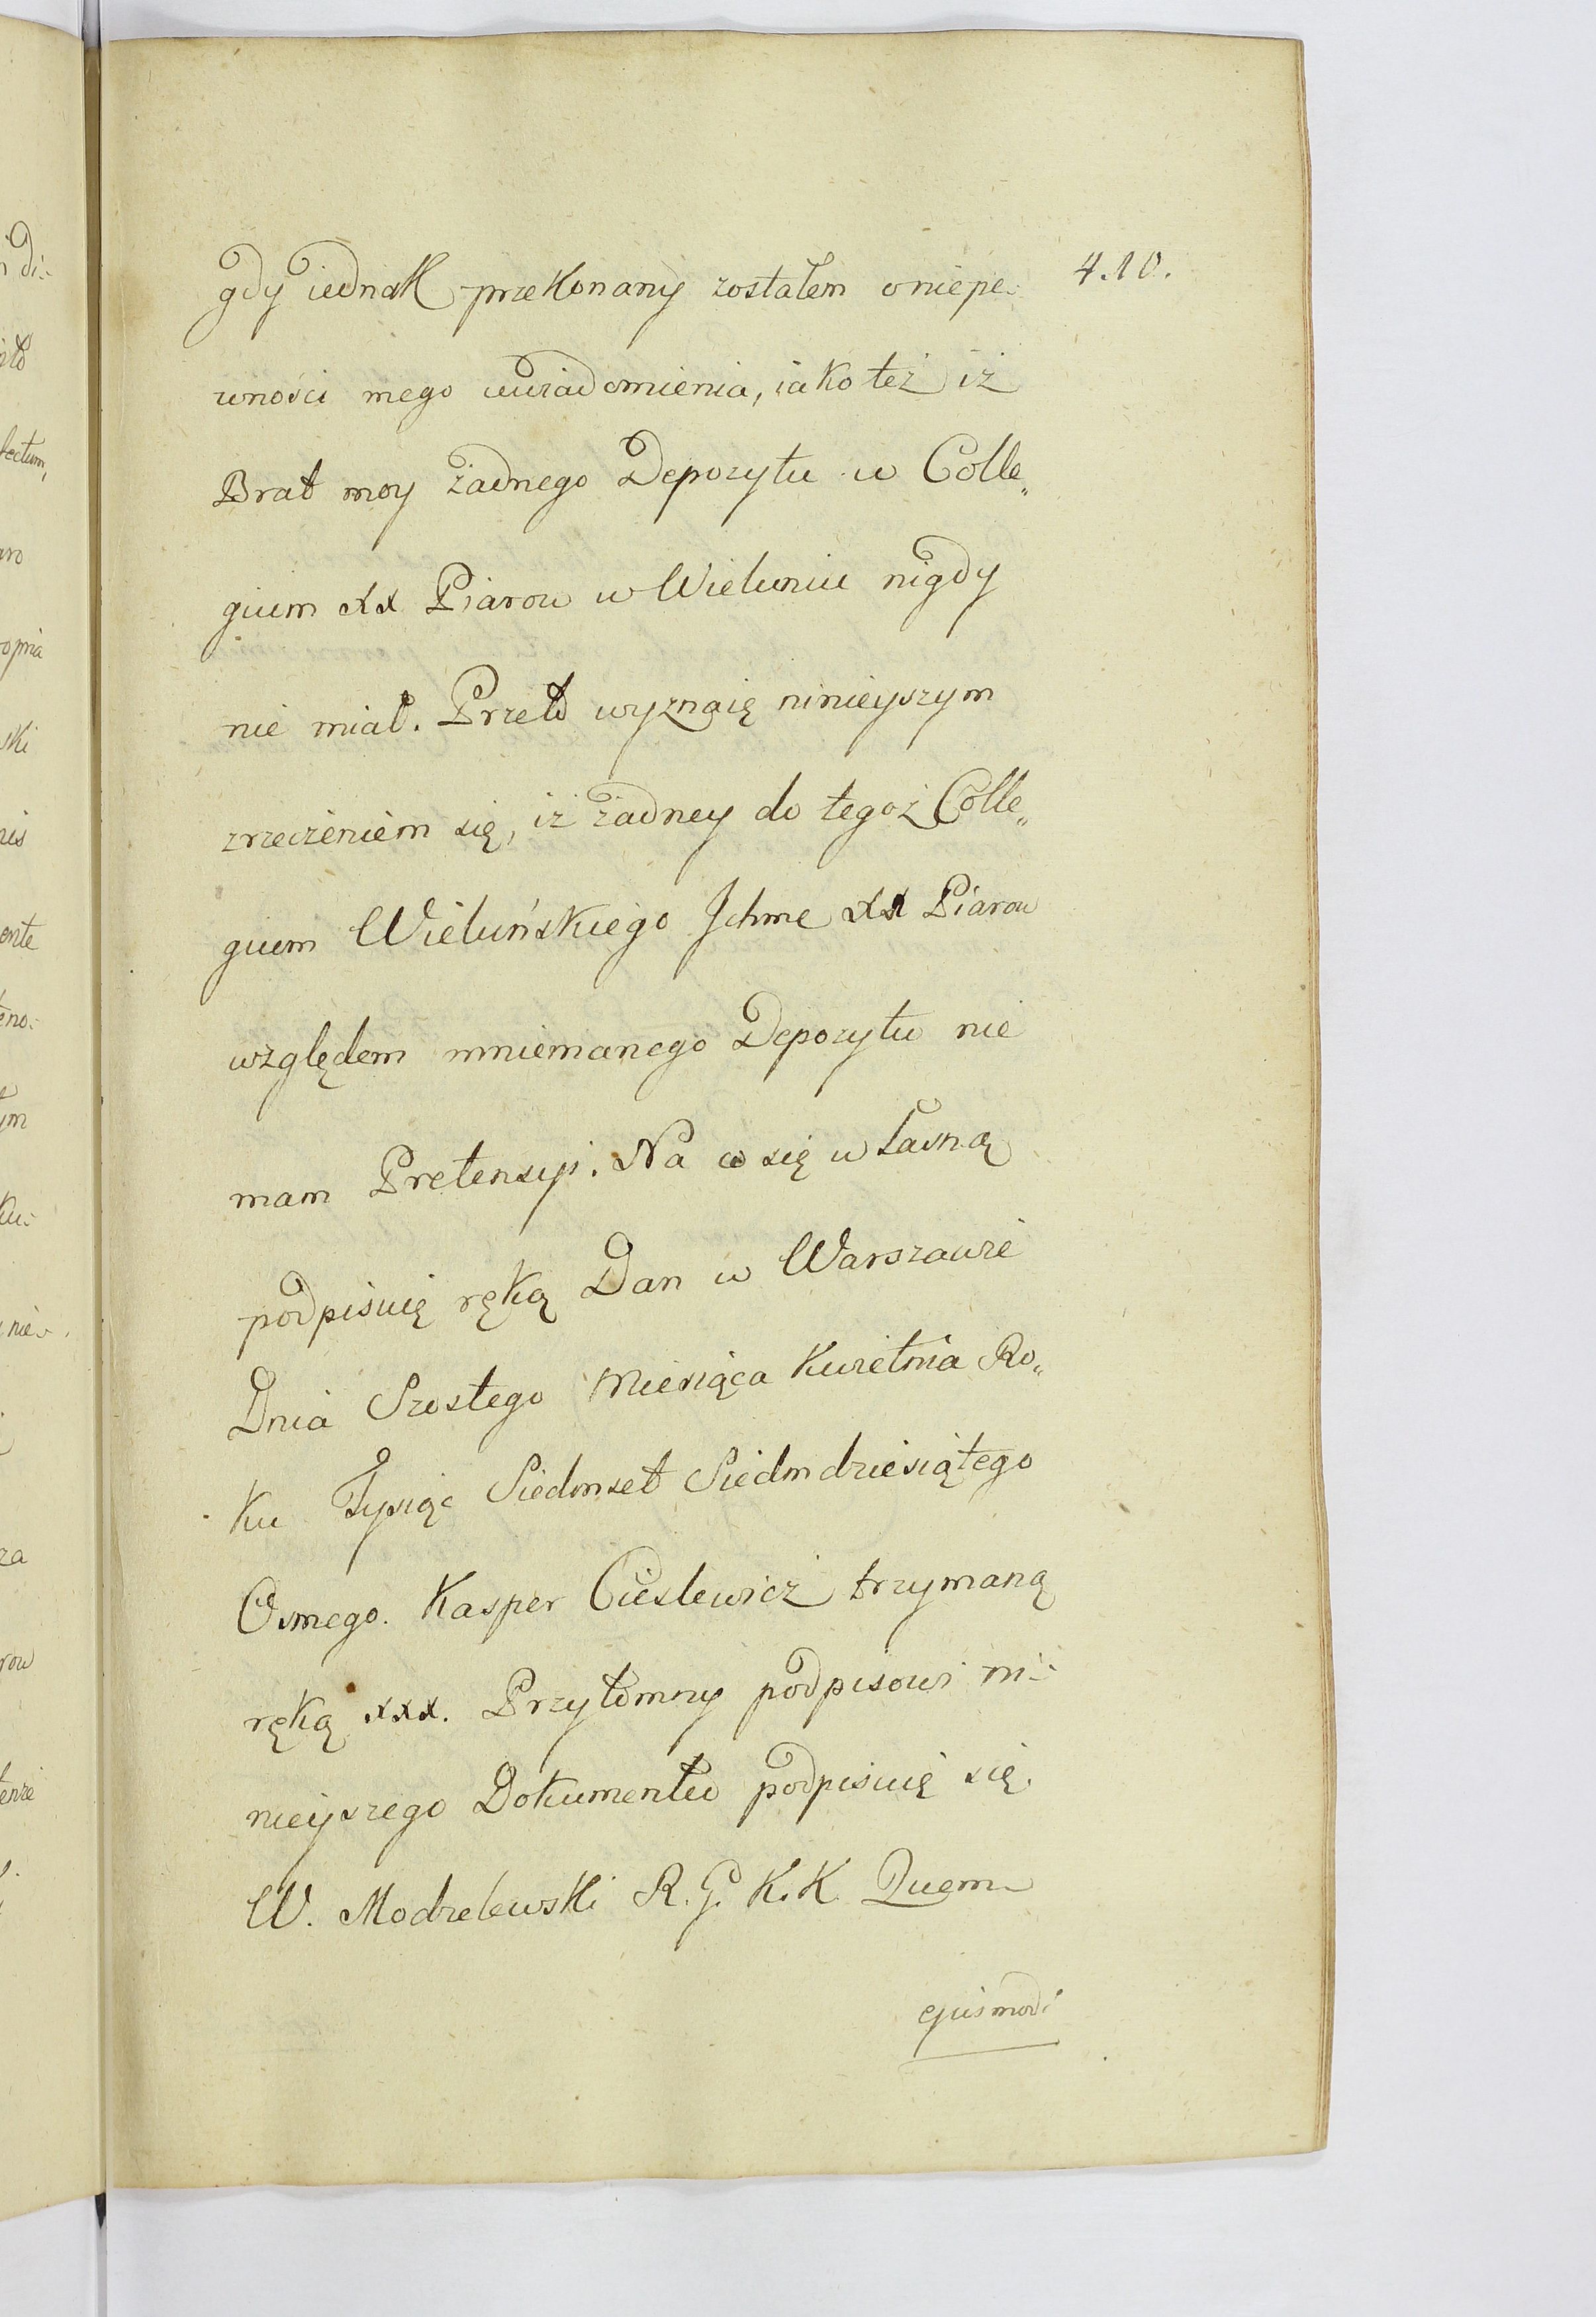 4.10.
gdy iednak przekonany zostałem o niepe-
wności mego uwiadomienia, iako też iż
Brat moy żadnego Depozytu w Colle„
gium XX Piarow w Wieluniu nigdy
nie miał. Przeto wyznaię ninieyszym
zrzeczeniem się, iż żadney do tegoż Colle„
gium Wieluńskiego Ichmc XX Piarow
względem mniemanego Depozytu nie
mam Pretensyi. Na co się własną
podpisuię ręką Dan w Warszawie
Dnia Szostego Miesiąca Kwietnia Ro„
ku Tysiąc Siedmset Siedmdziesiątego
Osmego. Kasper Cieslewicz trzymaną
ręką xxx. Przytomny podpisowi ni-
nieyszego Dokumentu podpisuię się.
W. Modzelewski R. G. K. K. Quem
ejusmodi